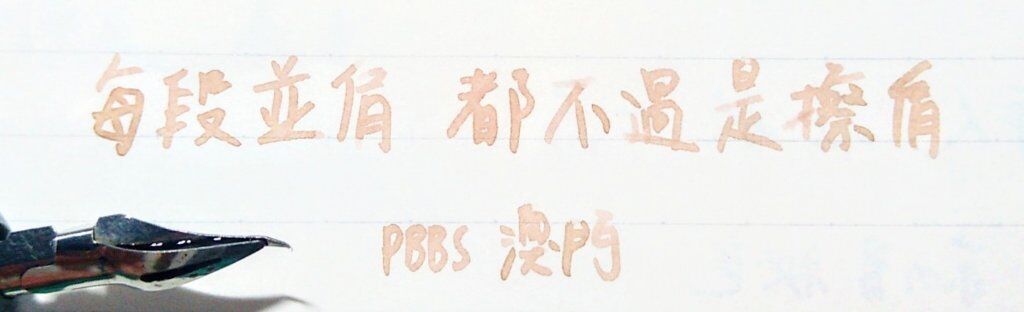 每段並肩 都不過是擦肩
PBBS 澳門